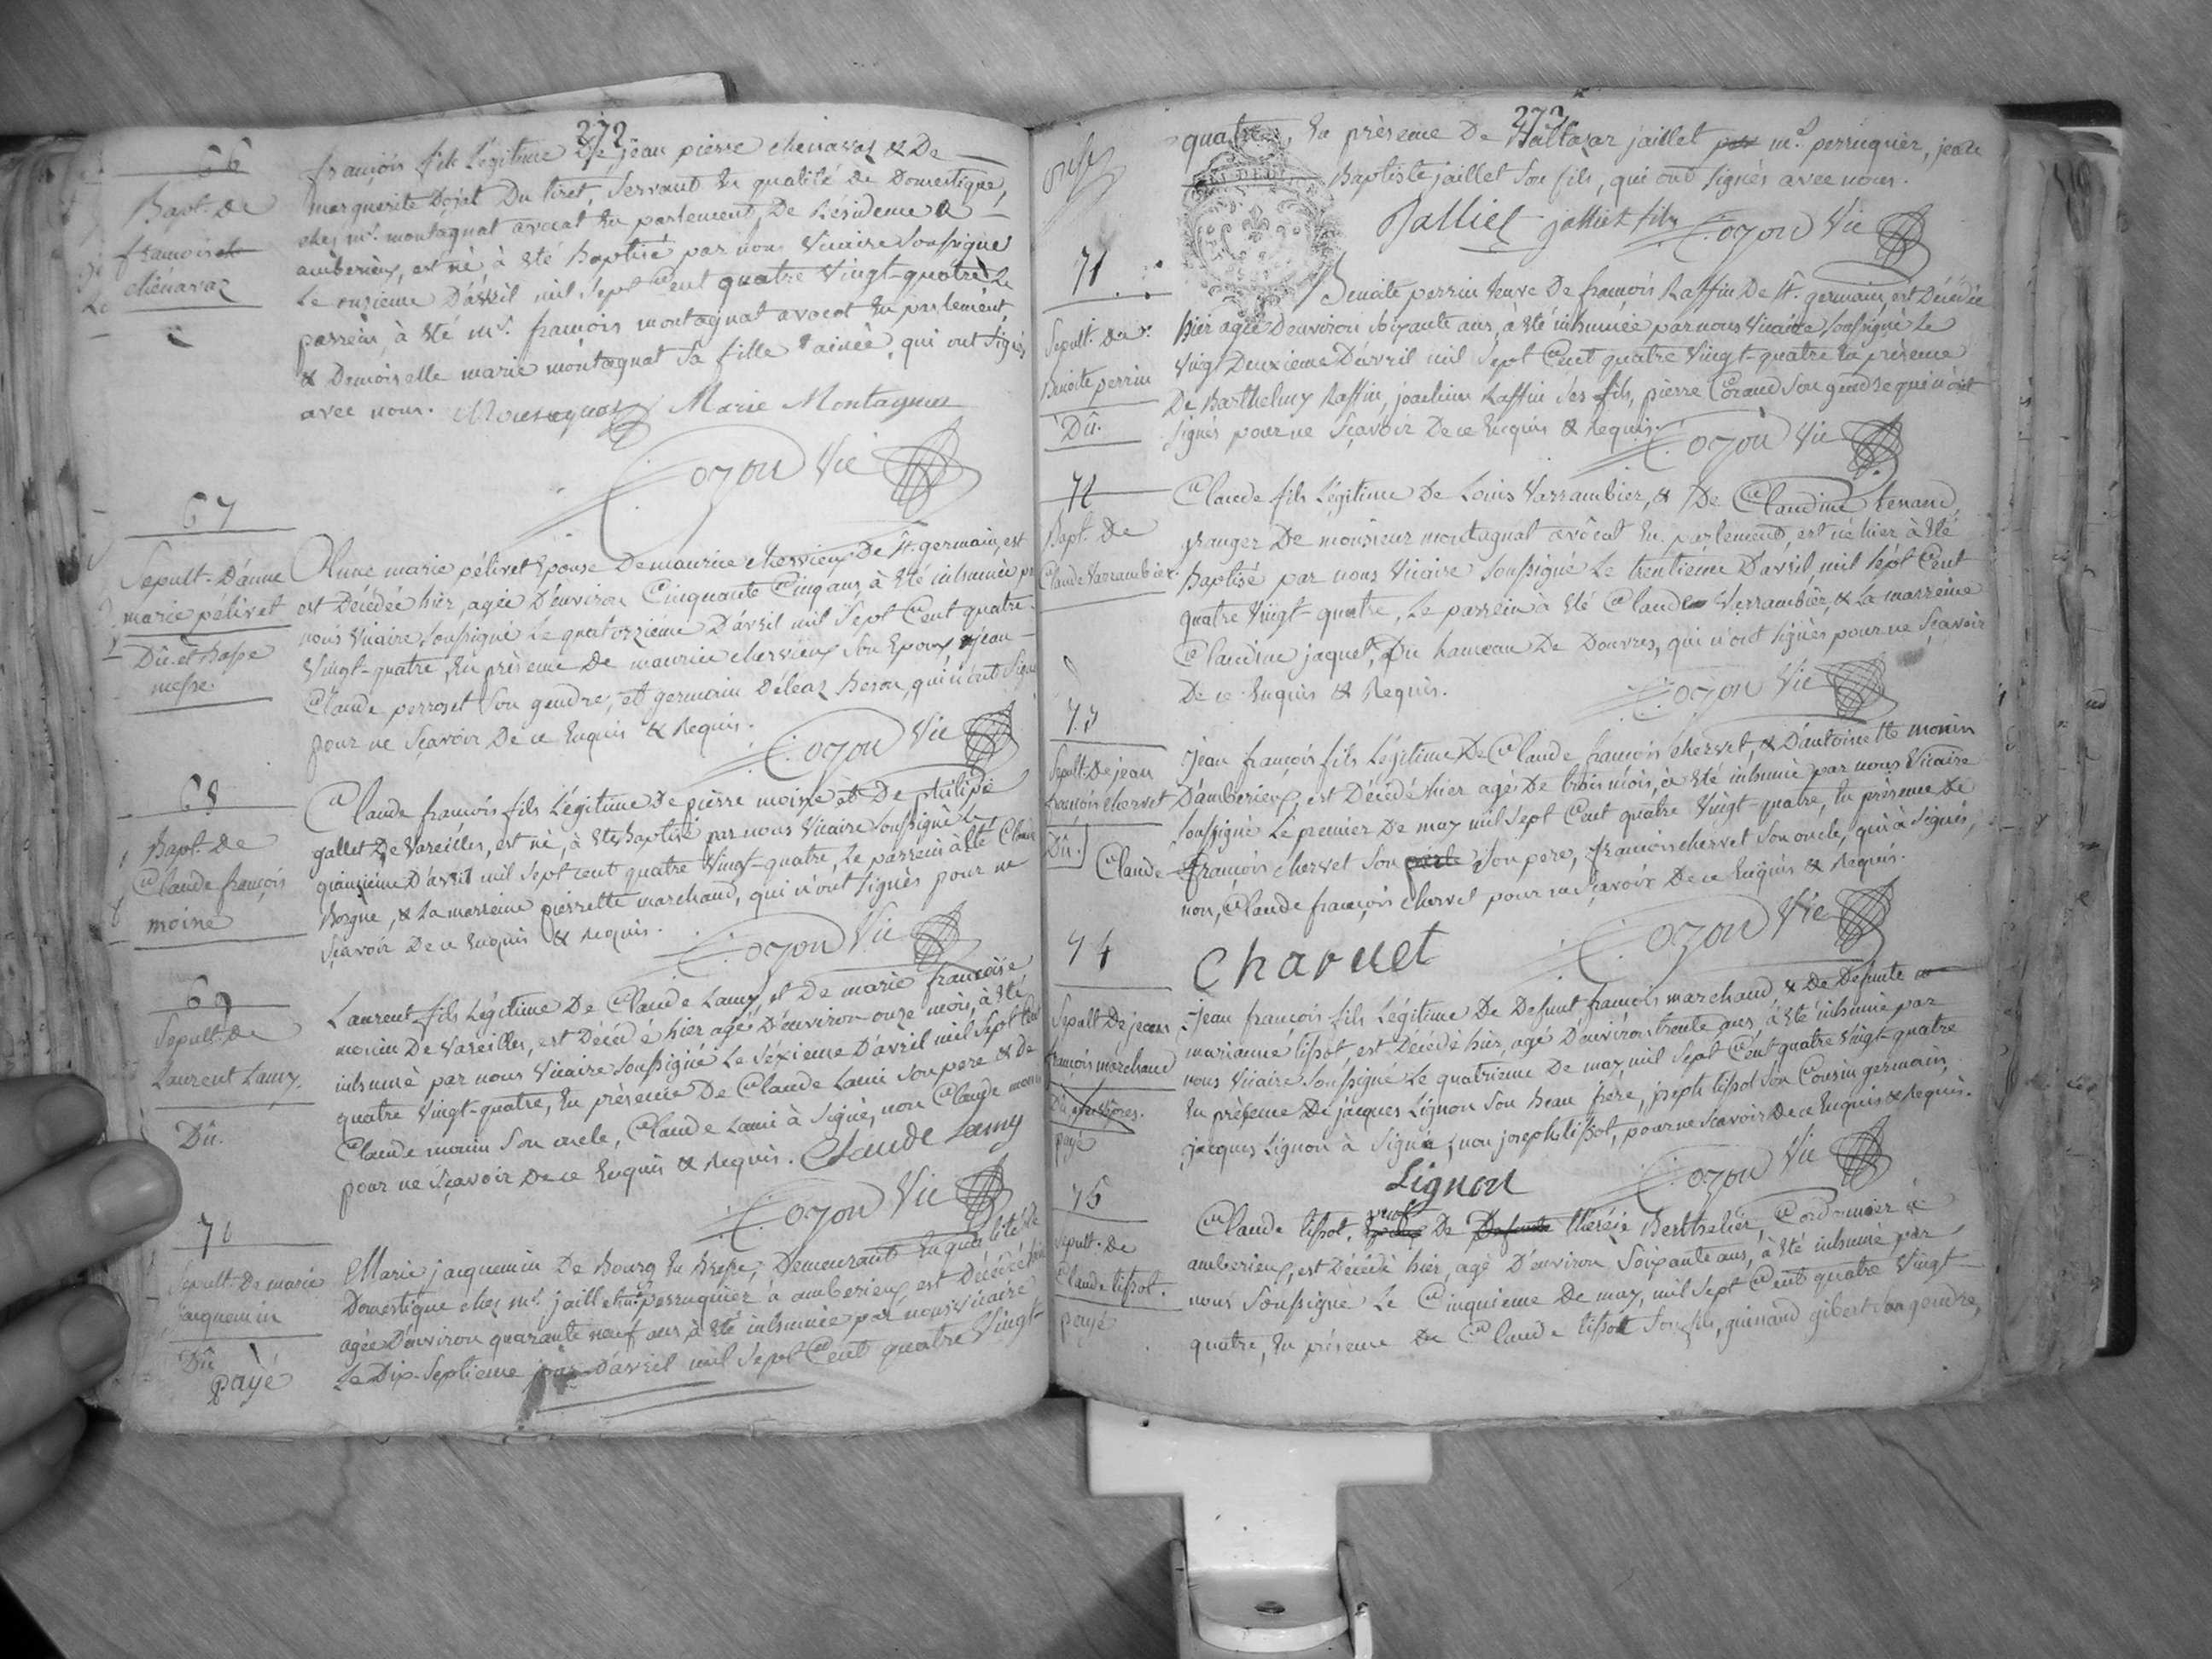 272
66
Bapt. de
francois
chenavaz
françois fils Légitime De jean pierre chenavaz & De
marguerite Dojat Du tiret, Servant En qualité De Domestique,
chez mr. montagnat avocat En parlement, De Résidence a
amberieux, est né, à été Baptisé par nous Vicaire Soussigné
Le onzieme D'avril mil Sept Cent quatre Vingt-quatre Le
parrein, à été mr. francois montagnat avocat En parlement,
& Demoiselle marie montagnat Sa fille ainée, qui ont signés
avec nous. Montagnat Marie Montagnat
Cozon Vic
67
Sepult. D'anne
marie pélivet
Dû et Basse
messe
Anne marie pélivet Epouse De maurice chervieux De St. germain, est
est Décédée hier, agée D'environ Cinquante Cinq ans, à été inhumée par
nous Vicaire Soussigné Le quatorzième D'avril mil Sept Cent quatre
Vingt-quatre, En présence De maurice chervieux Son Epoux, jean
Claude perroset Son gendre, et germain Déleaz Beson, qui n'ont Signé
pour ne Sçavoir De ce Enquis & Requis.
Cozon Vic
68
Bapt. de
Claude françois
moine
Claude francois fils Légitime De pierre moine et De philipe
gallet De Vareilles, est né, à été Baptisé par nous Vicaire Soussigné Le
quinzieme D'avril mil Sept cent quatre Vingt-quatre, Le parrein à été Claude
Borgne, & La marreine pierrette marchand, qui n'ont signés pour ne
Sçavoir De ce Enquis & Requis.
Cozon Vic
69
Sepult. de
Laurent Lamy.
Dû.
Laurent fils Légitime De Claude Lamy, et De marie francoise
monin De Vareilles, est Décédé hier agé D'environ onze mois, à été
inhumé par nous Vicaire Soussigné Le Séxieme D'avril mil Sept Cent
quatre Vingt-quatre, En présence De Claude Lami Son pere & de
Claude monin Son oncle, Claude Lami à Signé, non Claude monin
pour ne Sçavoir De ce Enquis & Requis. Claude Lamy
Cozon Vic
70
Sepult. De marie
jacquemin
Dû
payé
Marie jacquemin De Bourg En Bresse, Demeurant En qualité de
Domestique chez mr. jaillet md. perruquier à amberieux est Décédée hier
agée D'environ quarante neuf ans à été inhumée par nous Vicaire
Le Dix-Septieme jour D'avril mil Sept Cent quatre Vingt-
273
quatre, En présence De Baltazar jaillet md. perruquier, jean
Baptiste jaillet Son fils, qui ont signés avec nous.
Jalliet jalliet fils Cozon Vic
71
Sepult. de
Benoite perrin
Dû.
Benoite perrin Veuve De francois Raffin De St. germain, est Décédée
hier agée D'environ soixante ans, à été inhumée par nous Vicaire Soussigné Le
Vingt Deuxieme D'avril mil Sept Cent quatre Vingt-quatre En présence
De Barthelmy Raffin, joachim Raffin Ses fils, pierre Corand Son gendre qui n'ont
signés pour ne Sçavoir De ce Enquis & Requis.
Cozon Vic
72
Bapt. De
Claude Varrambier.
Claude fils Légitime De Louis Varrambier, & De Claudine Renand,
granger De monsieur montagnat avocat En parlement, est né hier à été
Baptisé par nous Vicaire Soussigné Le trentiéme D'avril mil Sept Cent
quatre Vingt-quatre, Le parrein à été Claude Varrambier, & La marreine
Claudine jaquet, Du hameau De Douvres, qui n'ont signés pour ne Sçavoir
De ce Enquis & Requis.
Cozon Vic
73
Sepult. De jean
françois chervet
Dû.
jean françois fils Légitime De Claude francois chervet, & D'antoinette monin
D'amberieux, est Décédé hier agé De trois mois, à été inhumé par nous Vicaire
Soussigné Le premier De may mil Sept Cent quatre Vingt-quatre, En présence De
Claude françois chervet Son pere, francois chervet Son oncle, qui à Signés,
non, Claude françois chervet pour ne Sçavoir De ce Enquis & Requis.
Charuet
Cozon Vic
74
Sepult De jean
francois marchand
payé
jean françois fils Légitime De Defunt francois marchand & De Defunte
marianne tissot, est Décédé hier, agé D'environ trente ans, à été inhumé par
nous Vicaire Soussigné Le quatrieme De may, mil Sept Cent quatre Vingt-quatre
En présence De jacques Lignon Son Beau frere, joseph tissot Son Cousin germain,
jacques Lignon à Signé, non joseph tissot, pour ne Scavoir De ce Enquis & Requis.
Lignon
Cozon Vic
75
Sepult. de
Claude tissot.
payé
Claude tissot, veuf De Therèse Berthelier, Cordonnier à
amberieux, est Décédé hier, agé D'environ Soixante ans, à été inhumé par
nous Soussigné Le Cinquieme De may, mil Sept Cent quatre Vingt
quatre, En présence De Claude tissot Son fils, guinand gibert Son gendre,